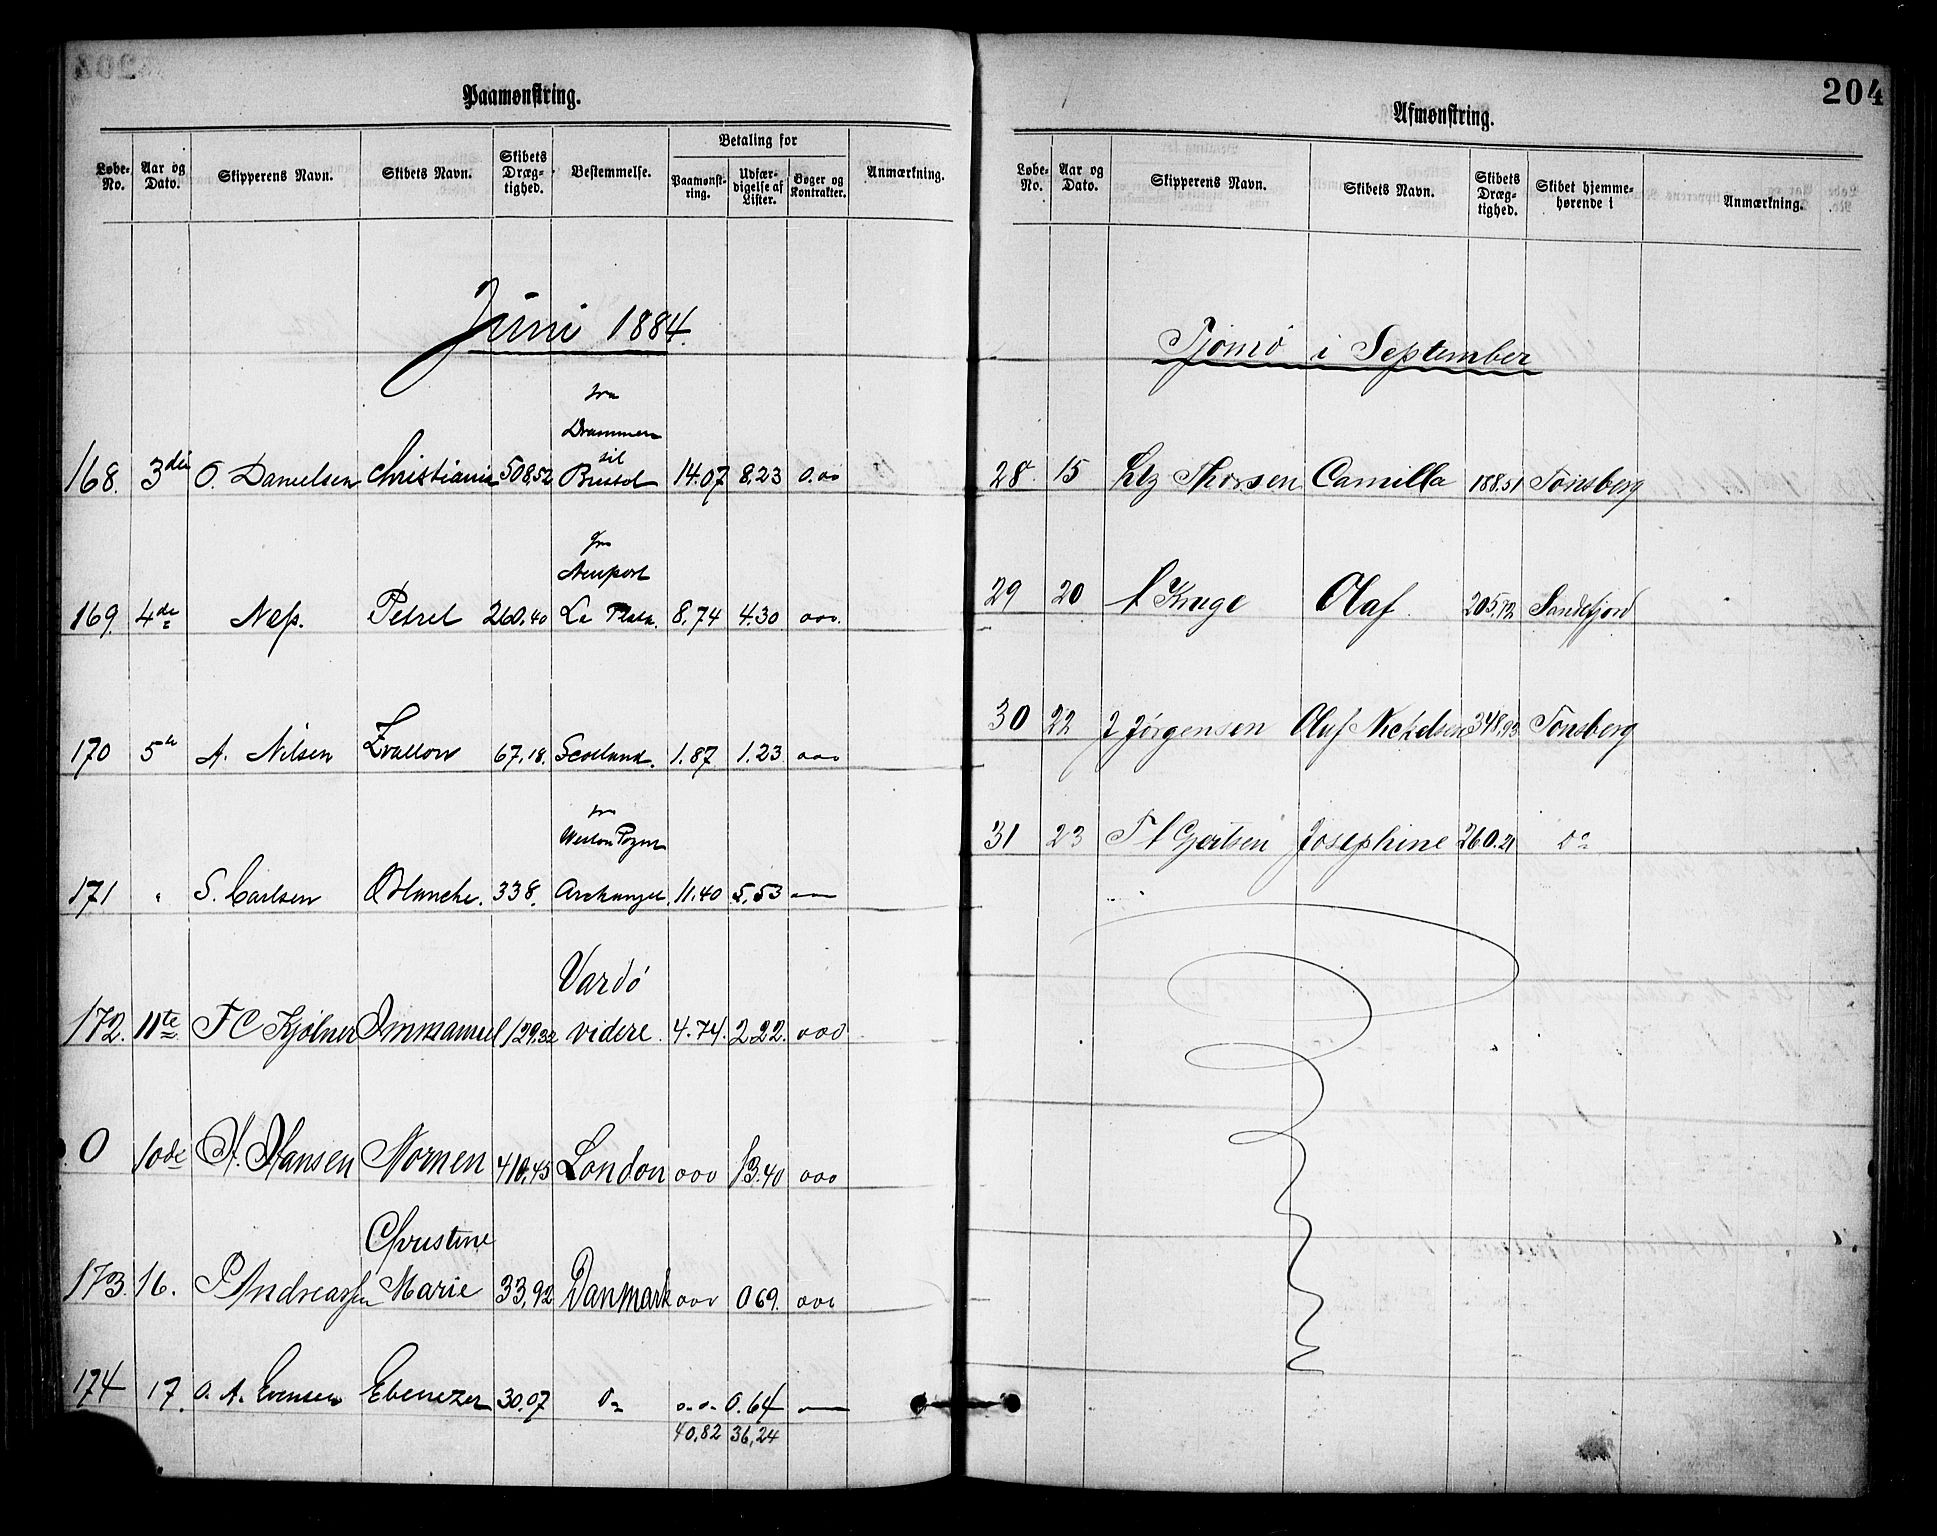 204
Paamønstring.
Løbe-No. Aar og Dato. Skipperens Navn. Skibets Navn. Skibets Dræg-tighed. Bestemmelse. Betaling for Paamønst-ring. Udfær-digelse af Lister. Bøger og Kontrakter. Anmærkning.
Juni 1884.
fra
Drammen
til
168. 3die O. Danielsen Christiania 508,52 Bristol 14.07 8,23 0.00
fra
Newport
169. 4de Næs. Petrel 260,40 La Plata. 8,74 4.30 000.
170 5te A. Nilsen 67,18. Scotland. 1.87 1.23 000
fra
171 " S. Carlsen Blanche. 338. Archangel 11.40 5,53
Vardø
172. 11te F C Kjølner Immanuel 129,32 videre. 4.74. 2 22. 000
0 10de H. Hansen Nornen 410,45 London 000 13.40 000
Christine
173. 16. P Andreassen Marie 33,92 Danmark 000 0 69. 000
174 17. O. A. Evensen Ebenezer 30.07 Do 0.0. 0.64
40,82 36,24
Afmønstring.
204
Løbe-No. Aar og Dato. Skipperens Navn. Skibets Navn. Skibets Dræg-tighed. Skibet hjemme-hørende i Anmærkning.
Tjømø i September
28. 15 Ltz Thorsen Camilla 188.51 Tønsberg
29 20 A Kruge Olaf 205,72 Sandefjord
30 22 J Jørgensen Oluf Nickelsen 348,93 Tønsberg
31 23 T A Gjertsen Josephine 260.21 Do